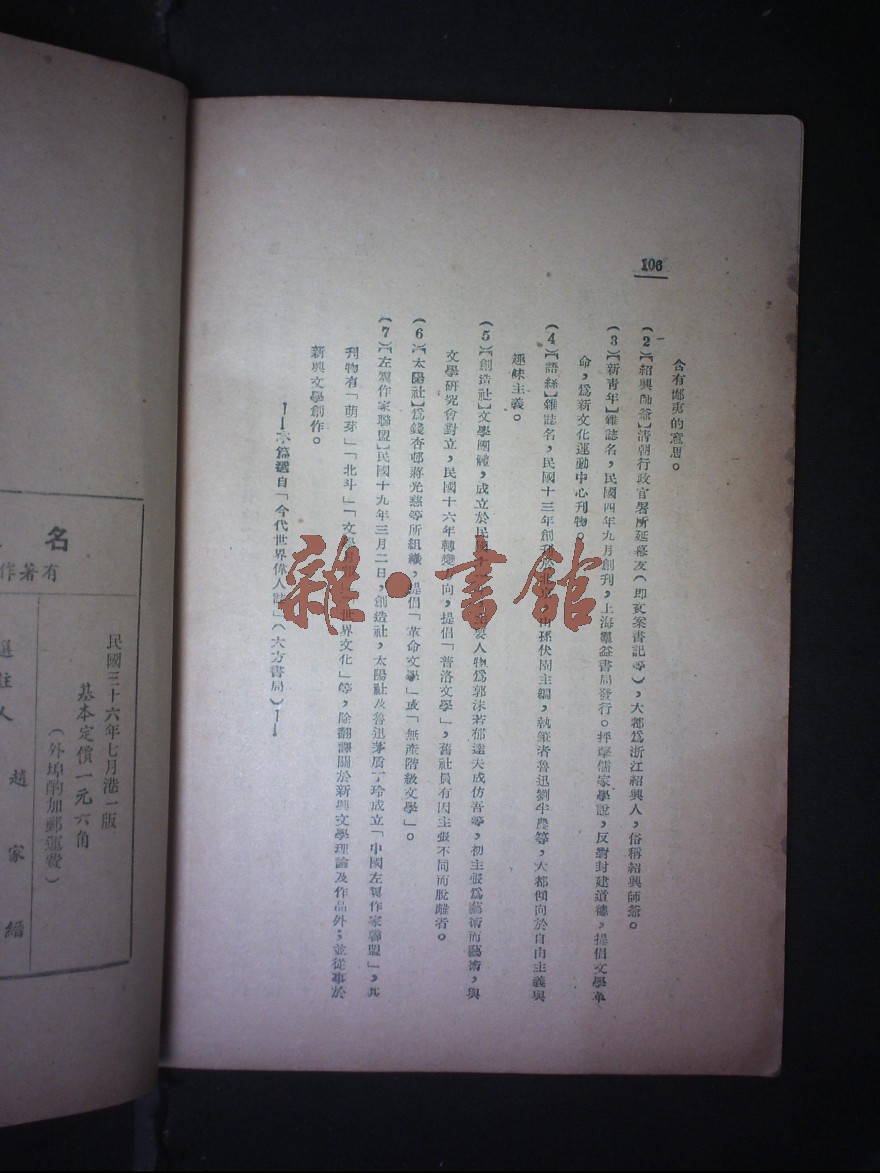 106
含有鄙夷的意思。
（2）【紹興師爺】清朝行政官署所延幕友（卽文案書記等），大都爲浙江紹興人，俗稱紹興師爺。
（3）【新青年】雜誌名，民國四年九月創刊，上海羣益書局發行。抨擊儒家學說，反對封建道德，提倡文學革
命，爲新文化運動中心刊物。
（4）【語絲】雜誌名，民國十三年創刊於 由孫伏園主編，執筆者魯迅劉半農等，大都傾向於自由主義與
趣味主義。
（5）【創造社】文學團體，成立於民國十 主要人物爲郭沫若郁達夫成仿吾等，初主張爲藝術而藝術，與
文學研究會對立，民國十六年轉變方向，提倡「普洛文學」，舊社員有因主張不同而脫離者。
（6）【太陽社】爲錢杏邨蔣光慈等所組織，提倡「革命文學」或「無產階級文學」。
（7）【左翼作家聯盟】民國十九年三月二日，創造社，太陽社及魯迅茅盾丁玲成立「中國左翼作家聯盟」，其
刊物有「萌芽」「北斗」「文學 世界文化」等，除翻譯關於新興文學理論及作品外，並從事於
新興文學創作。
——本篇選自「今代世界偉人誌」（大方書局）——
雜·書館
名
有著作
民國三十六年七月港一版
基本定價一元六角
（外埠酌加郵運費）
選註人 趙家縉